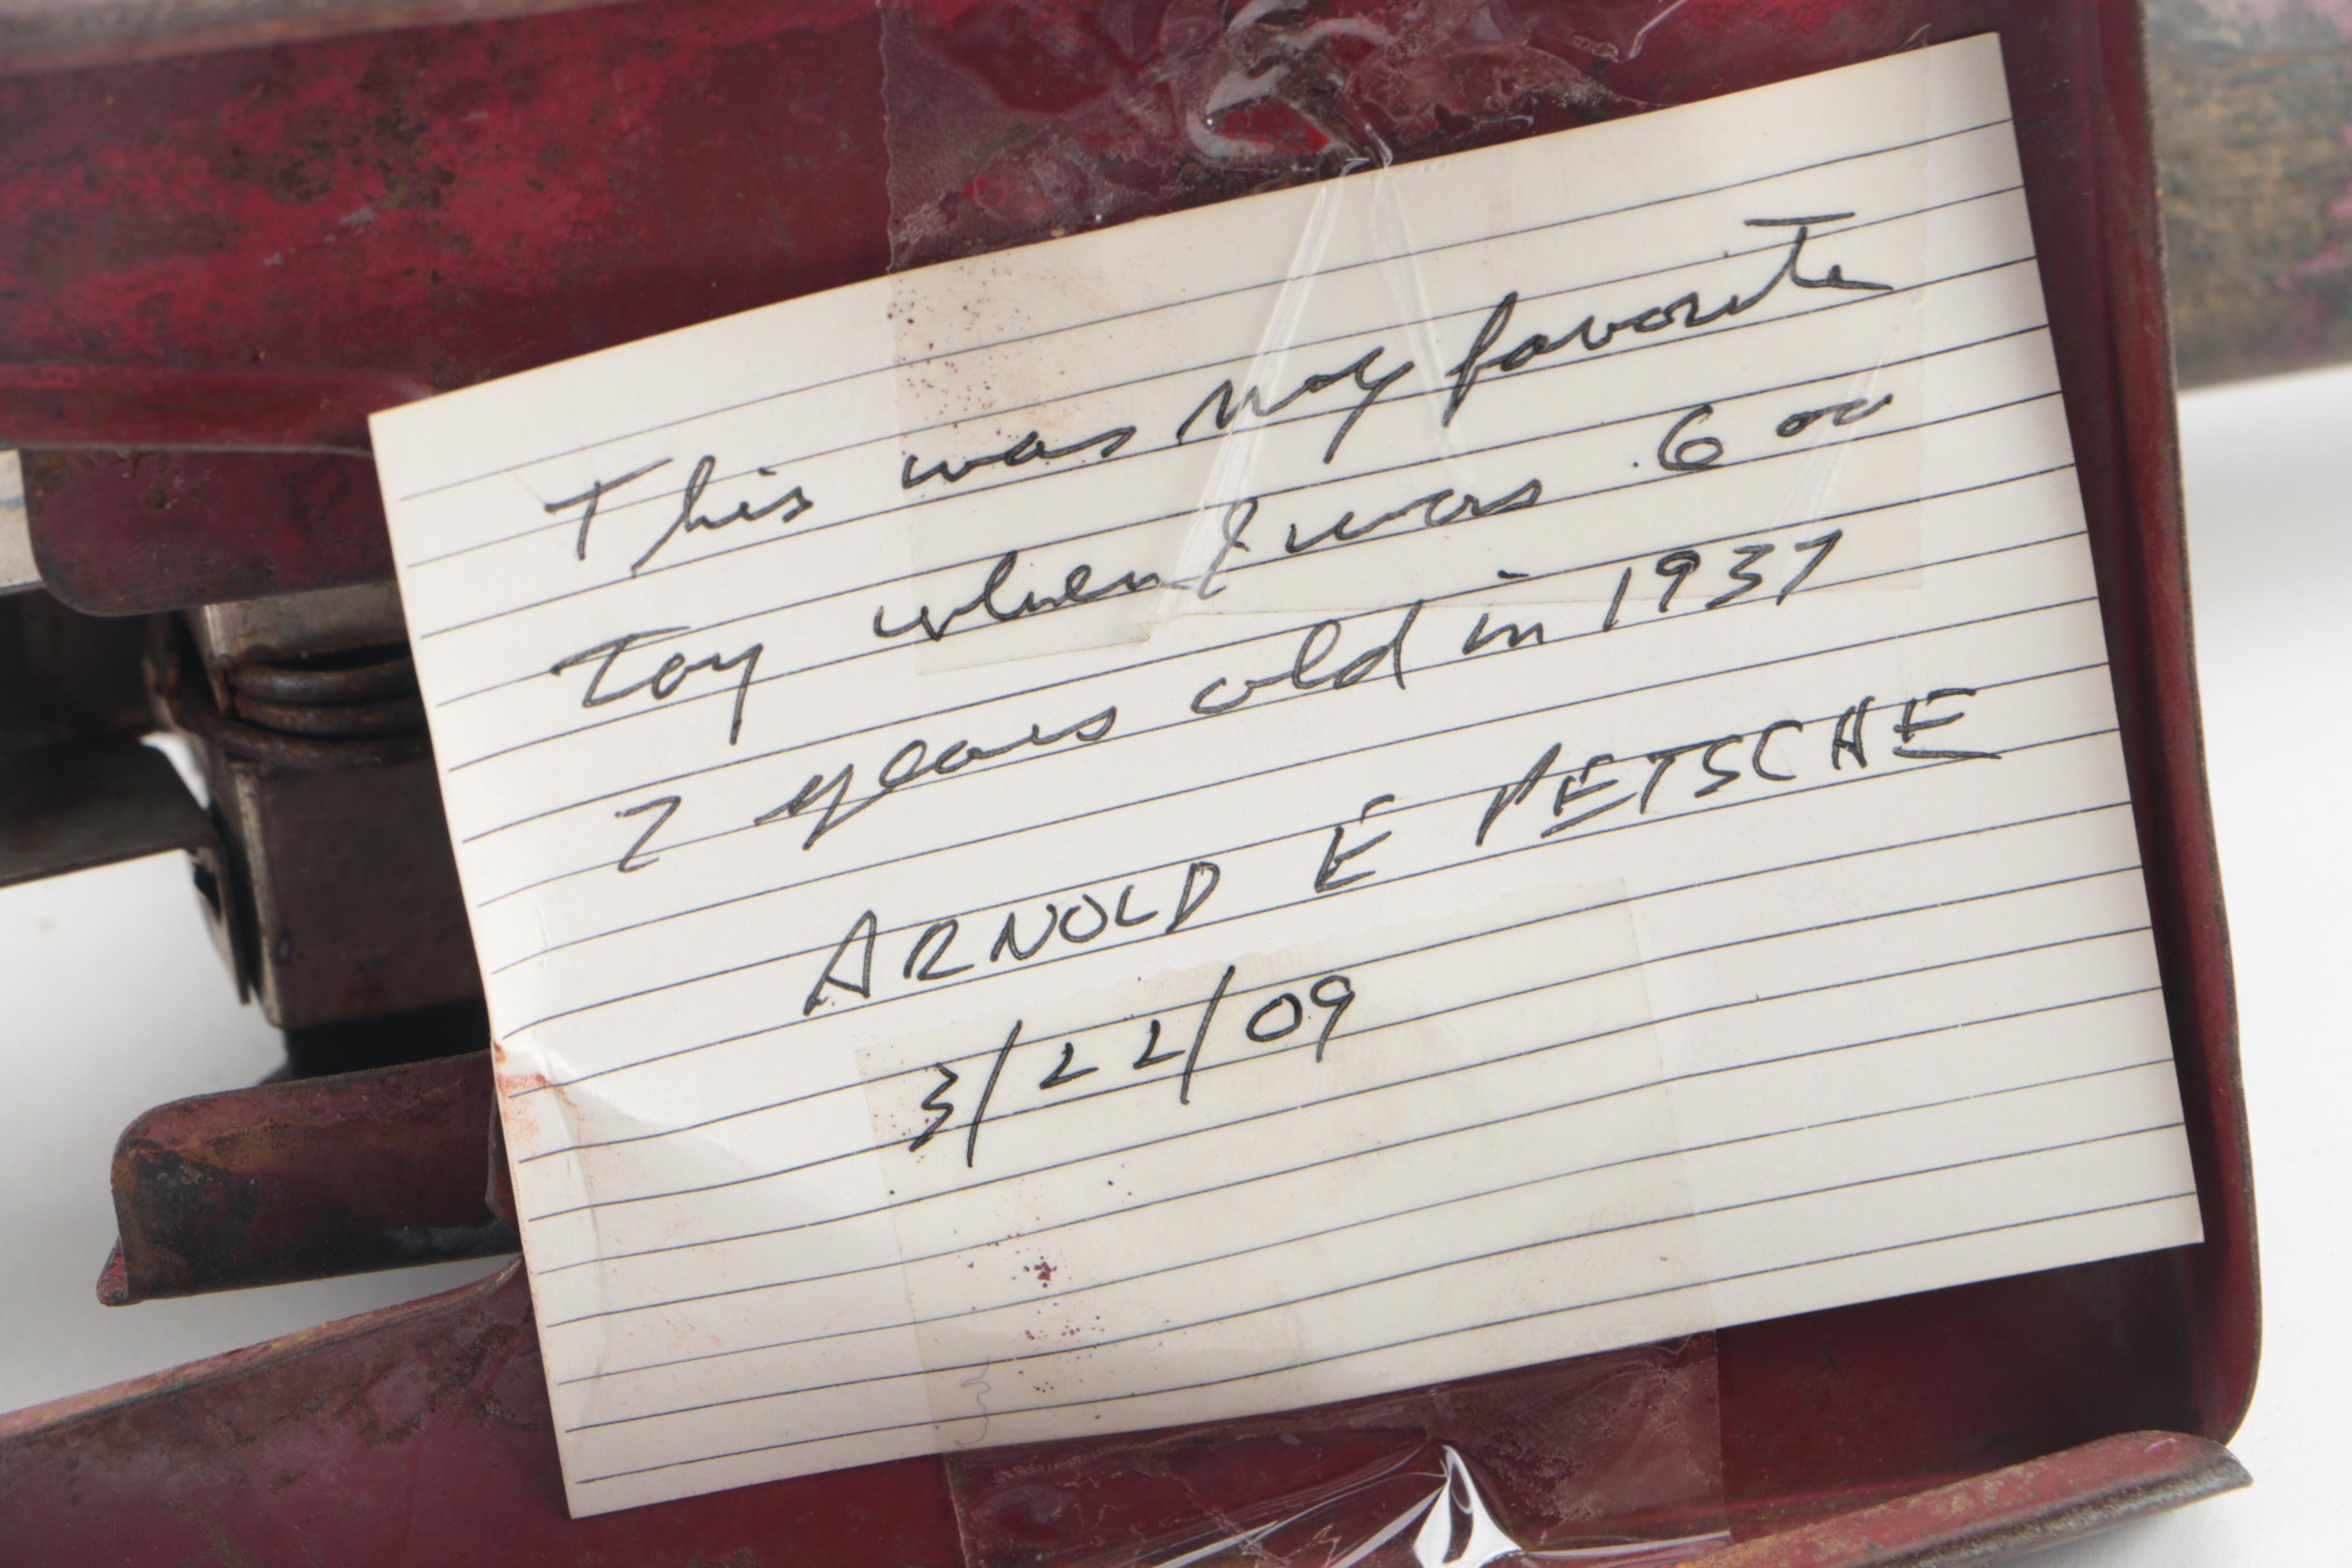 This was my favorite
Toy when I was 6 or
7 years old in 1937
ARNOLD E PETSCHE
3/22/09